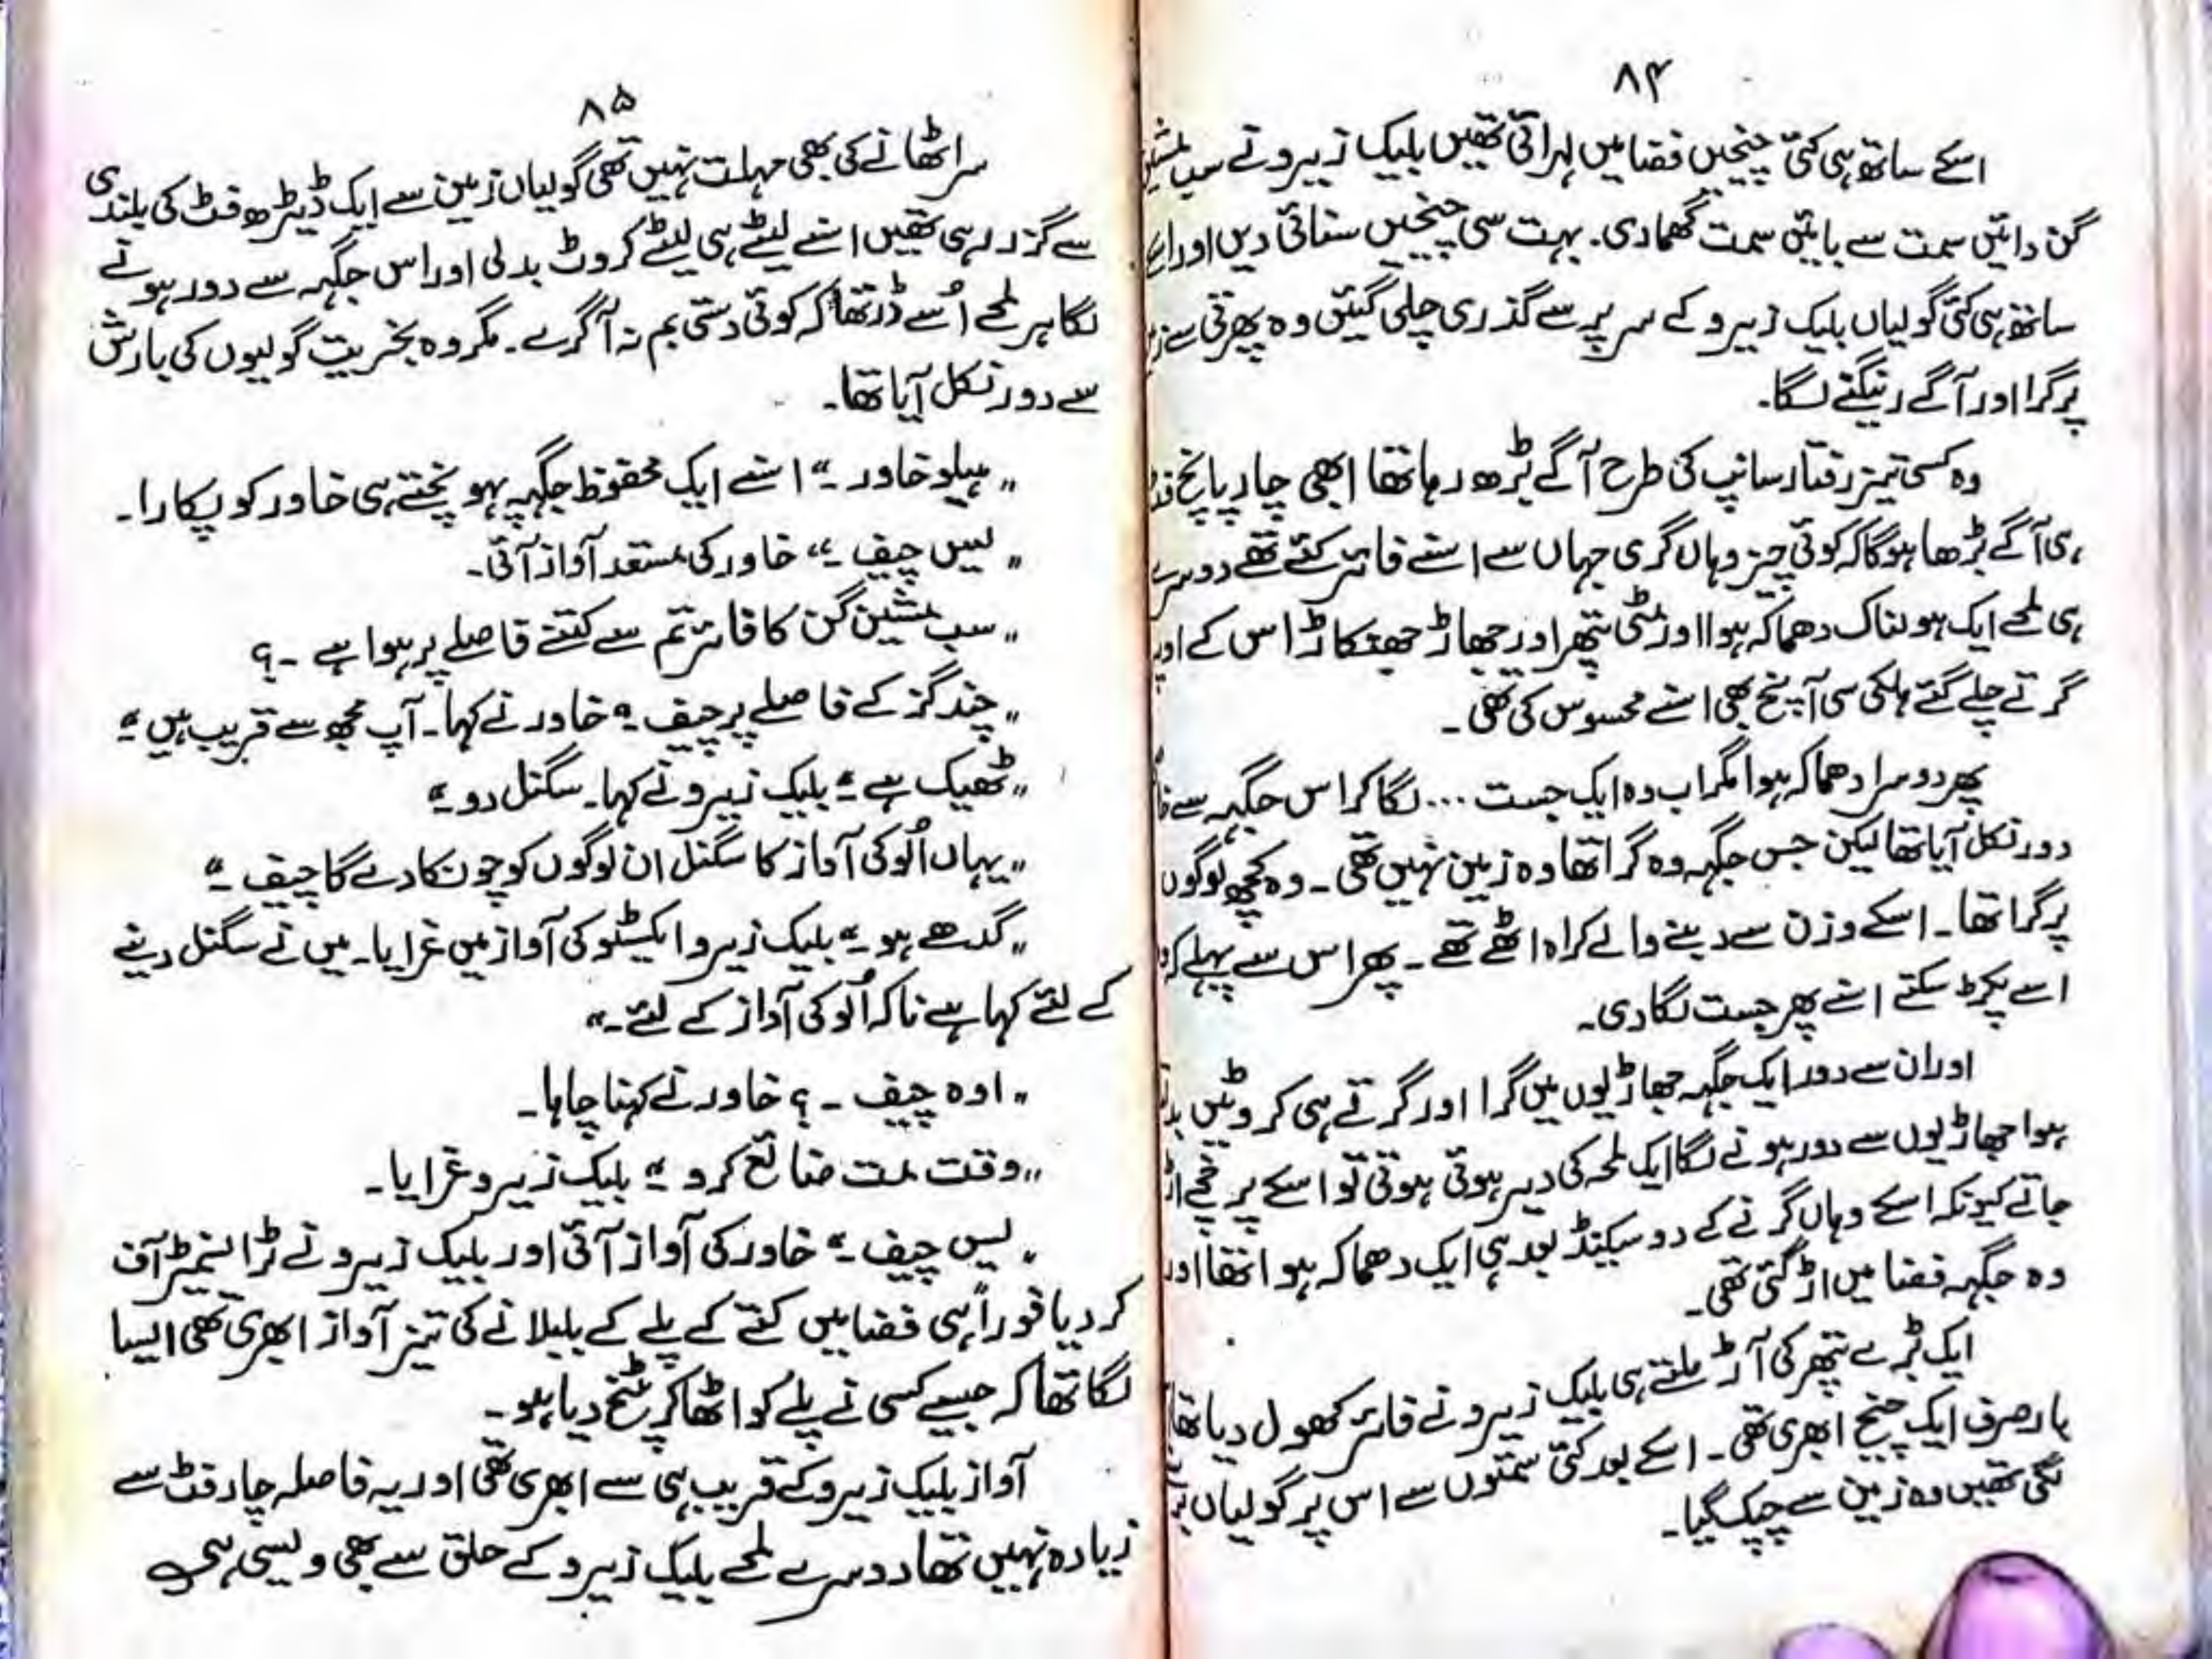 ۸۴
اسکے ساتھ ہی کئی چیخیں فضا میں لہرائی تھیں بلیک زیرو نے سب مشین
گن دائیں سمت سے بائیں سمت گھما دی۔ بہت سی چیخیں سنائی دیں اور اسکے
ساتھ ہی کئی گولیاں بلیک زیرو کے سر پر سے گذری چلی گئیں وہ پھرتی سے
پر گرا اور آگے رینگنے لگا۔
وہ کسی تیز رفتار سانپ کی طرح آگے بڑھ رہا تھا ابھی چار پانچ
ہی آگے بڑھا ہوگا کہ کوئی چیز وہاں گری جہاں سے اسنے فائر کئے تھے دوسرے
ہی لمحے ایک ہولناک دھماکہ ہوا اور مٹی پتھر اور جھاڑ جھنکاڑ اس کے اوپر
گرتے چلے گئے ہلکی سی آنچ بھی اسنے محسوس کی تھی۔
پھر دوسرا دھماکہ ہوا مگر اب وہ ایک جست ... لگا کر اس جگہہ سے
دور نکل آیا تھا لیکن جس جگہہ وہ گرا تھا وہ زمین نہیں تھی۔ وہ کچھ لوگوں
پر گرا تھا۔ اسکے وزن سے دبنے والے کراہ اٹھے تھے۔ پھر اس سے پہلے کہ
اسے پکڑ سکتے اسنے پھر جست لگا دی۔
اور ان سے دور ایک جگہہ جھاڑیوں میں گرا اور گرتے ہی کروٹیں
ہوا جھاڑیوں سے دور ہونے لگا ایک لمحہ کی دیر ہوئی ہوتی تو اسکے پرخچے اڑ
جاتے کیونکہ اسکے وہاں گرنے کے دو سیکنڈ بعد ہی ایک دھماکہ ہوا تھا اور
وہ جگہہ فضا میں اڑ گئی تھی۔
ایک بڑے پتھر کی آڑ ملتے ہی بلیک زیرو نے فائر کھول دیا تھا
بار صرف ایک چیخ ابھری تھی۔ اسکے بعد کئی سمتوں سے اس پر گولیاں
لگی تھیں وہ زمین سے چپک گیا۔
۸۵
سر اٹھانے کی بھی مہلت نہیں تھی گولیاں زمین سے ایک ڈیڑھ فٹ کی بلندی
سے گزر رہی تھیں اسنے لیٹے ہی لیٹے کروٹ بدلی اور اس جگہہ سے دور ہونے
لگا ہر لمحے اُسے ڈر تھا کہ کوئی دستی بم نہ آگرے۔ مگر وہ بخریت گولیوں کی بارش
سے دور نکل آیا تھا۔
"ہیلو خاور۔" اسنے ایک محفوظ جگہہ پہونچتے ہی خاور کو پکارا۔
"یس چیف۔" خاور کی مستعد آواز آئی۔
"سب مشین گن کا فائر تم سے کتنے فاصلے پر ہوا ہے۔؟
"چند گز کے فاصلے پر چیف۔" خاور نے کہا۔ آپ مجھ سے قریب ہیں۔"
"ٹھیک ہے۔" بلیک زیرو نے کہا۔ سگنل دو۔"
"یہاں اُلو کی آواز کا سگنل ان لوگوں کو چونکا دے گا چیف۔"
"گدھے ہو۔" بلیک زیرو ایکسٹو کی آواز میں غرایا۔ میں نے سگنل دینے
کے لئے کہا ہے نا کہ اُلو کی آواز کے لئے۔"
"اوہ چیف۔؟ خاور نے کہنا چاہا۔
"وقت مت ضائع کرو۔" بلیک زیرو غرایا۔
"یس چیف۔" خاور کی آواز آئی اور بلیک زیرو نے ٹرانسمیٹر آف
کر دیا فوراً ہی فضا میں کتے کے پلے کے بلبلانے کی تیز آواز ابھری تھی ایسا
لگا تھا کہ جیسے کسی نے پلے کو اٹھا کر پٹخ دیا ہو۔
آواز بلیک زیرو کے قریب ہی سے ابھری تھی اور یہ فاصلہ چار فٹ سے
زیادہ نہیں تھا دوسرے لمحے بلیک زیرو کے حلق سے بھی ویسی ہی